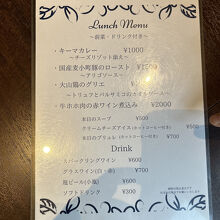 Lunch Menu
～前菜・ドリンク付き～
・キーマカレー ¥1000
～チーズリゾット添え～
・国産麦小町豚のロースト
～アリゴソース～
・大山鶏のグリエ
～トリュフとバルサミコのソース～
・牛ホホ肉の赤ワイン煮込み ¥2000
本日のスープ ¥500
クリームチーズアイス(ホットコーヒー付き) ¥500
本日のブリュレ(ホットコーヒー付き) ¥700
Drink
スパークリングワイン ¥600
グラスワイン(白・赤) ¥500
瓶ビール(小瓶) ¥600
ソフトドリンク ¥300